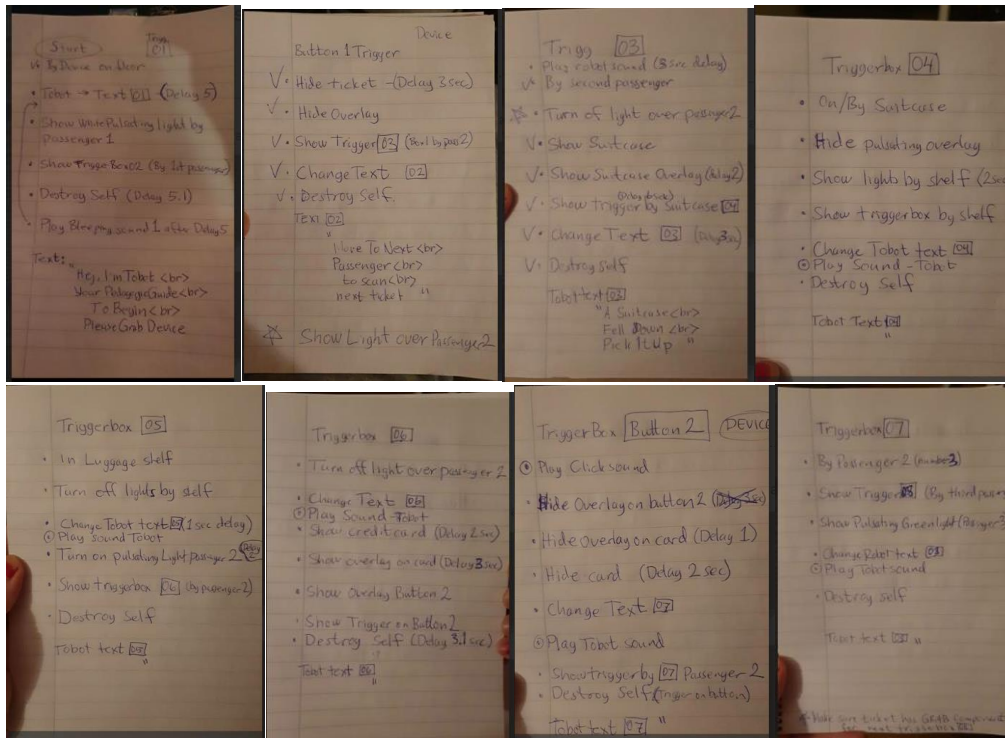 Start
Trigg
01
By Device on Door
Tobot → Text 01 (Delay 5)
Show White Pulsating light by
passenger 1
Show Trigger Box 02 (By 1st passenger)
Destroy Self (Delay 5.1)
Play Bleeping sound 1 after Delay 5
Text: "
Hey, I'm Tobot <br>
Your Guide <br>
To Begin <br>
Please Grab Device
Device
Button 1 Trigger
V • Hide ticket - (Delay 3 sec)
V • Hide Overlay
V • Show Trigger 03 (Box 1 by pass 2)
V • Change Text 02
V • Destroy Self.
Text 02
"
Move To Next <br>
Passenger <br>
to scan <br>
next ticket "
☆ Show Light over Passenger 2
Trigg 03
• Play robot sound (3 sec delay)
By second passenger
☆ • Turn of light over passenger 2
V • Show Suitcase
V • Show Suitcase Overlay (Delay 2)
V • Show trigger by Suitcase 04
V • Change Text 03 (Delay 3 sec)
V • Destroy self
Tobot text 03
"A Suitcase <br>
Fell Down <br>
Pick It Up "
Triggerbox 04
• On/By Suitcase
• Hide pulsating overlay
• Show lights by shelf (2 sec
• Show triggerbox by shelf
• Change Tobot text 04
Play Sound - Tobot
• Destroy Self
Tobot Text 04
"
Triggerbox 05
• In Luggage shelf
• Turn off lights by shelf
• Change Tobot text 05 (1 sec delay)
Play sound Tobot
• Turn on pulsating Light passenger 2
• Show triggerbox 06 (by passenger 2)
• Destroy Self
Tobot text 05
"
Triggerbox 06
• Turn off light over passenger 2
• Change Text 06
Play Sound - Tobot
• Show credit card (Delay 2 sec)
• Show overlay on card (Delay 3 sec)
• Show Overlay Button 2
• Show Trigger on Button 2
• Destroy Self (Delay 3.1 sec)
Tobot text 06
"
TriggerBox Button 2 DEVICE
Play Click sound
• Hide Overlay on button 2
• Hide overlay on card (Delay 1)
• Hide card (Delay 2 sec)
• Change Text 07
Play Tobot sound
• Show trigger by 07 Passenger 2
• Destroy Self (Trigger on button)
Tobot text 07 "
Triggerbox 07
• By Passenger 2 (number 3)
• Show Trigger 08 (By third pass
• Show Pulsating Green light (Passenger 3
• Change Robot text 08
Play Tobot sound
• Destroy self
Tobot text 08 "
Make sure ticket has GRAB component
for next trigger